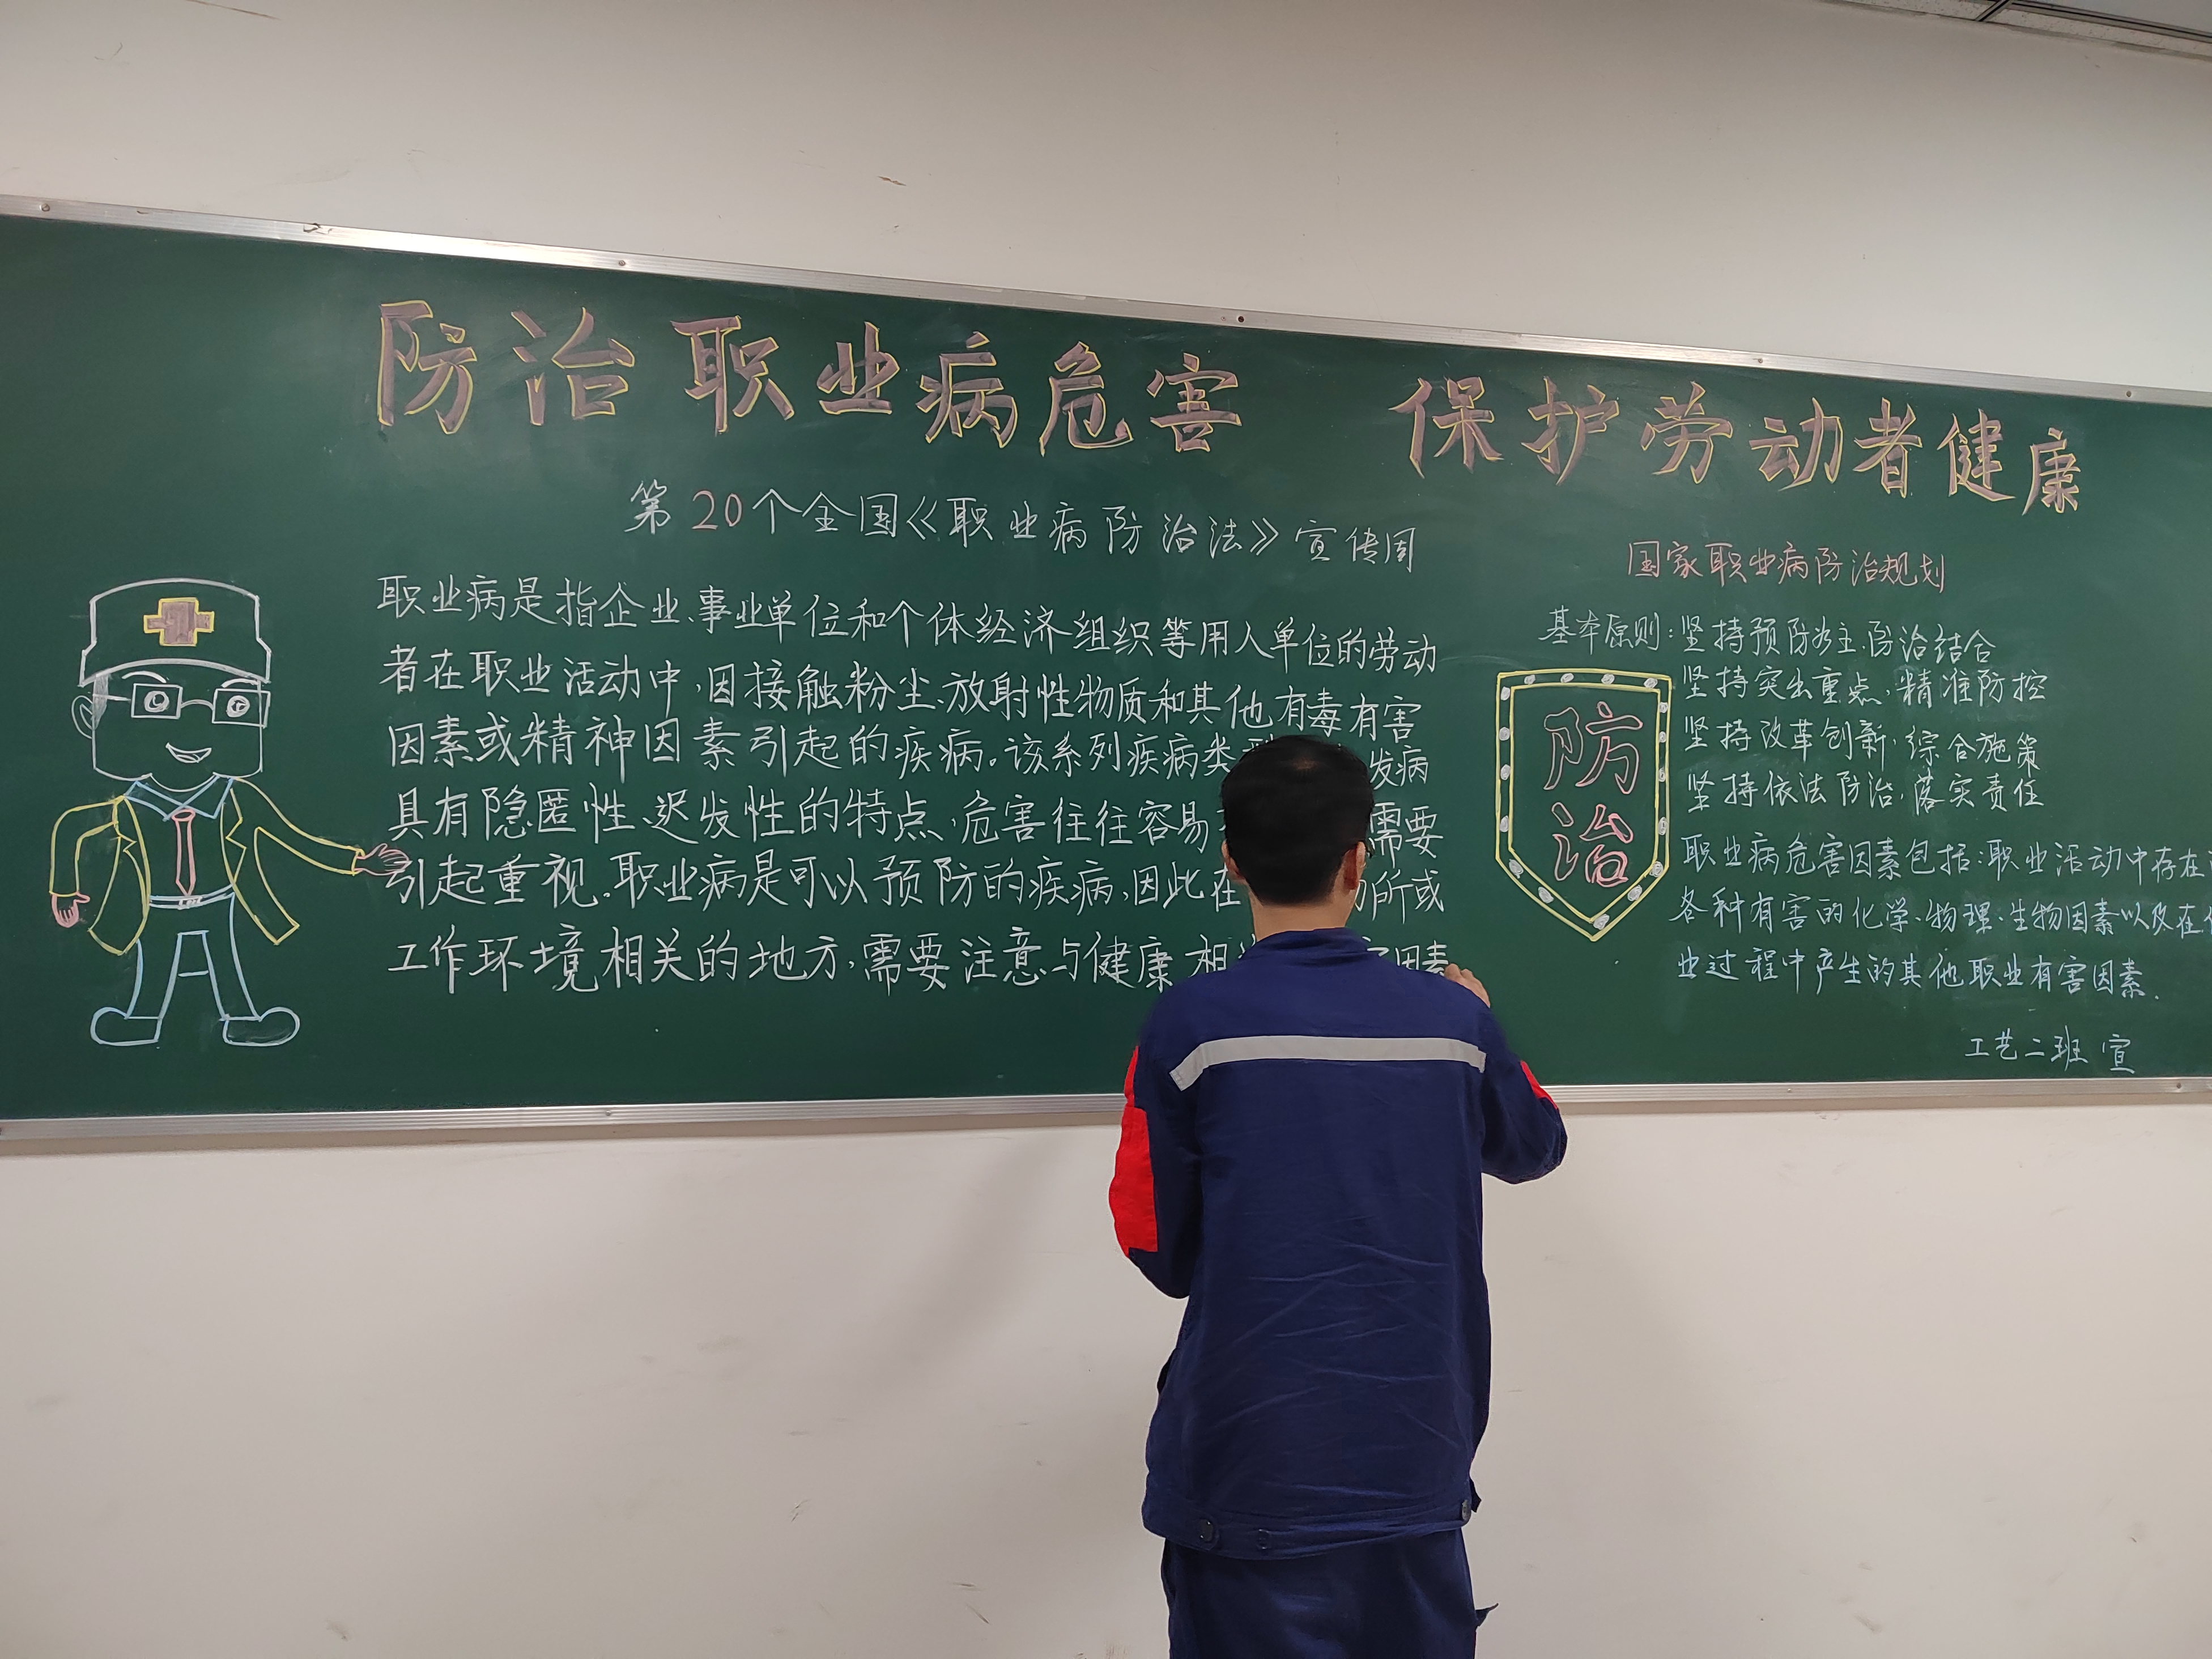 防治职业病危害 保护劳动者健康
第20个全国《职业病防治法》宣传周
职业病是指企业、事业单位和个体经济组织等用人单位的劳动
者在职业活动中,因接触粉尘、放射性物质和其他有毒有害
因素或精神因素引起的疾病。该系列疾病类 发病
具有隐匿性、迟发性的特点,危害往往容易 需要
引起重视。职业病是可以预防的疾病,因此在 所或
工作环境相关的地方,需要注意与健康相 因素
国家职业病防治规划
基本原则:坚持预防为主、防治结合
坚持突出重点,精准防控
坚持改革创新,综合施策
坚持依法防治,落实责任
防
治
职业病危害因素包括:职业活动中存在
各种有害的化学、物理、生物因素以及在
业过程中产生的其他职业有害因素.
工艺二班 宣